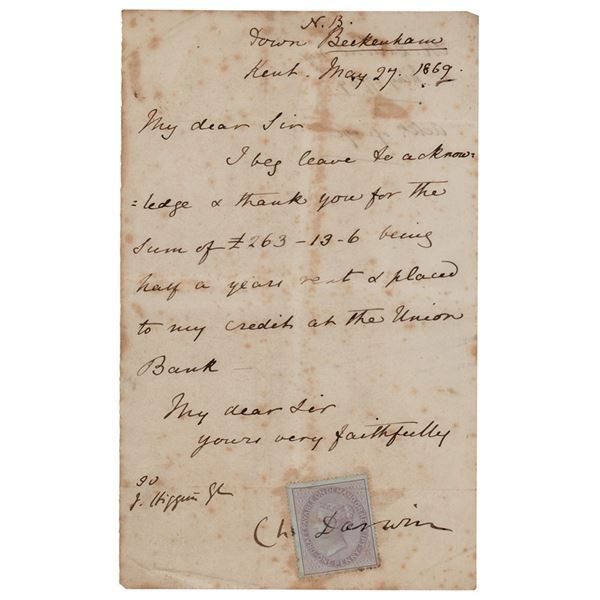 N.B.
Down Beckenham
Kent. May 27. 1869.
My dear Sir
I beg leave to acknow=
=ledge & thank you for the
sum of £263-13-6 being
half a years rent & placed
to my credit at the Union
Bank —
My dear Sir
yours very faithfully
J. Higgins
Ch. Darwin
ONE PENNY